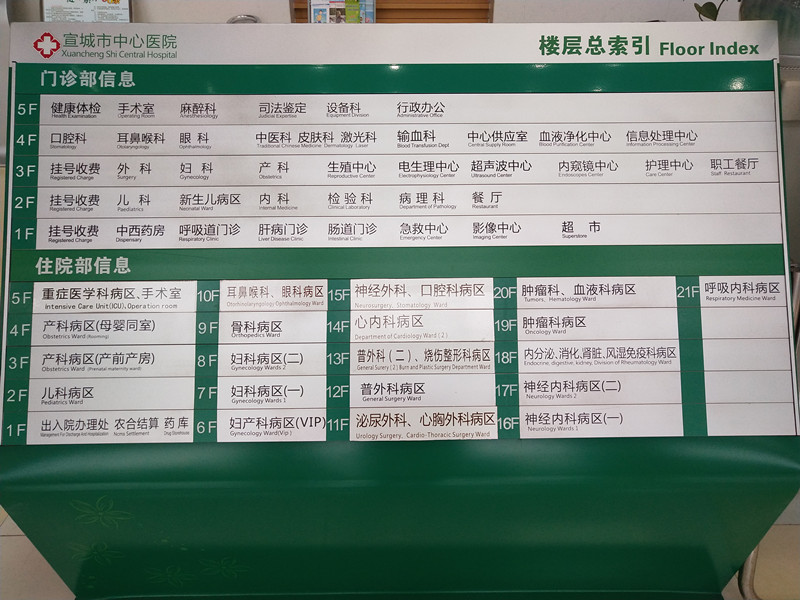 宣城市中心医院
Xuancheng Shi Central Hospital
楼层总索引 Floor Index
门诊部信息
5F 健康体检 手术室 麻醉科 司法鉴定 设备科 行政办公
Health Examination Operating Room Anesthesiology Judicial Expertise Equipment Division Administrative Office
4F 口腔科 耳鼻喉科 眼科 中医科 皮肤科 激光科 输血科 中心供应室 血液净化中心 信息处理中心
Stomatology Otolaryngology Ophthalmology Traditional Chinese Medicine Dermatology Laser Blood Transfusion Dept Central Supply Room Blood Purification Center Information Processing Center
3F 挂号收费 外科 妇科 产科 生殖中心 电生理中心 超声波中心 内窥镜中心 护理中心 职工餐厅
Registered Charge Surgery Gynecology Obstetrics Reproductive Center Electrophysiology Center Ultrasound Center Endoscopes Center Care Center Staff Restaurant
2F 挂号收费 儿科 新生儿病区 内科 检验科 病理科 餐厅
Registered Charge Paediatrics Neninatal Ward Internal Medicine Clinical Laboratory Department of Pathology Restaurant
1F 挂号收费 中西药房 呼吸道门诊 肝病门诊 肠道门诊 急救中心 影像中心 超市
Registered Charge Dispensary Respiratory Clinic Liver Disease Clinic Intestinal Clinic Emergency Center Imaging Center Superstore
住院部信息
5F 重症医学科病区、手术室
Intensive Care Unit(ICU),Operation room
4F 产科病区(母婴同室)
Obstetrics Ward (Rooming)
3F 产科病区(产前产房)
Obstetrics Ward (Prenatal maternity ward)
2F 儿科病区
Pediatrics Ward
1F 出入院办理处 农合结算 药库
Management For Discharge And Hospitalization Ncms Settlement Drug Storehouse
10F 耳鼻喉科、眼科病区
Otorhinolaryngology Ophthalmology Ward
9F 骨科病区
Orthopedics Ward
8F 妇科病区(二)
Gynecology Wards 2
7F 妇科病区(一)
Gynecology Wards 1
6F 妇产科病区(VIP)
Gynecology Ward(Vip)
15F 神经外科、口腔科病区
Neurosurgery, Stomatology Ward
14F 心内科病区
Department of Cardiology Ward (2)
13F 普外科(二)、烧伤整形科病区
General Surery (2) Burn and Plastic Surgery Department Ward
12F 普外科病区
General Surgery Ward
11F 泌尿外科、心胸外科病区
Urology Surgery, Cardio-Thoracic Surgery Ward
20F 肿瘤科、血液科病区
Tumors, Hematology Ward
19F 肿瘤科病区
Oncology Ward
18F 内分泌,消化,肾脏,风湿免疫科病区
Endocrine, digestive, kidney, Division of Rheumatology Ward
17F 神经内科病区(二)
Neurology Wards 2
16F 神经内科病区(一)
Neurology Wards 1
21F 呼吸内科病区
Respiratory Medicine Ward